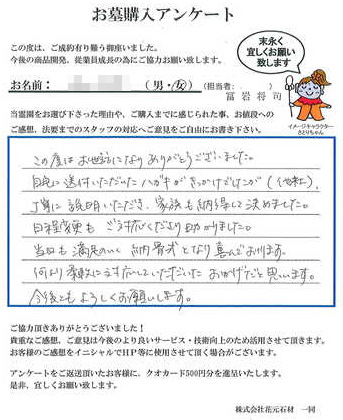 お墓購入アンケート
この度は、ご成約有り難う御座いました。
今後の商品開発、従業員成長の為にご協力お願い致します。
末永く
宜しくお願い
致します
お名前： (男・女) (担当者： )
冨岩将司
当霊園をお選び下さった理由や、ご購入までに感じられた事、お値段への
ご感想、法要までのスタッフの対応へご意見をご自由にお書き下さい。
イメージキャラクター
さとりちゃん
この度はお世話になりありがとうございました。
自宅に送付いただいたハガキがきっかけでしたが(他社)、
丁寧に説明いただき、家族も納得して決めました。
日程変更もご対応くださり助かりました。
当日も満足のいく納骨式となり喜んでおります。
何より親切に対応していただいたおかげだと思います。
今後ともよろしくお願いします。
ご協力頂きありがとうございました！
貴重なご感想、ご意見は今後のより良いサービス・技術向上のため活用させて頂きます。
お客様のご感想をイニシャルでHP等に使用させて頂く場合がございます。
アンケートをご返送頂いたお客様に、クオカード500円分を進呈いたします。
是非、宜しくお願い致します。
株式会社花元石材 一同